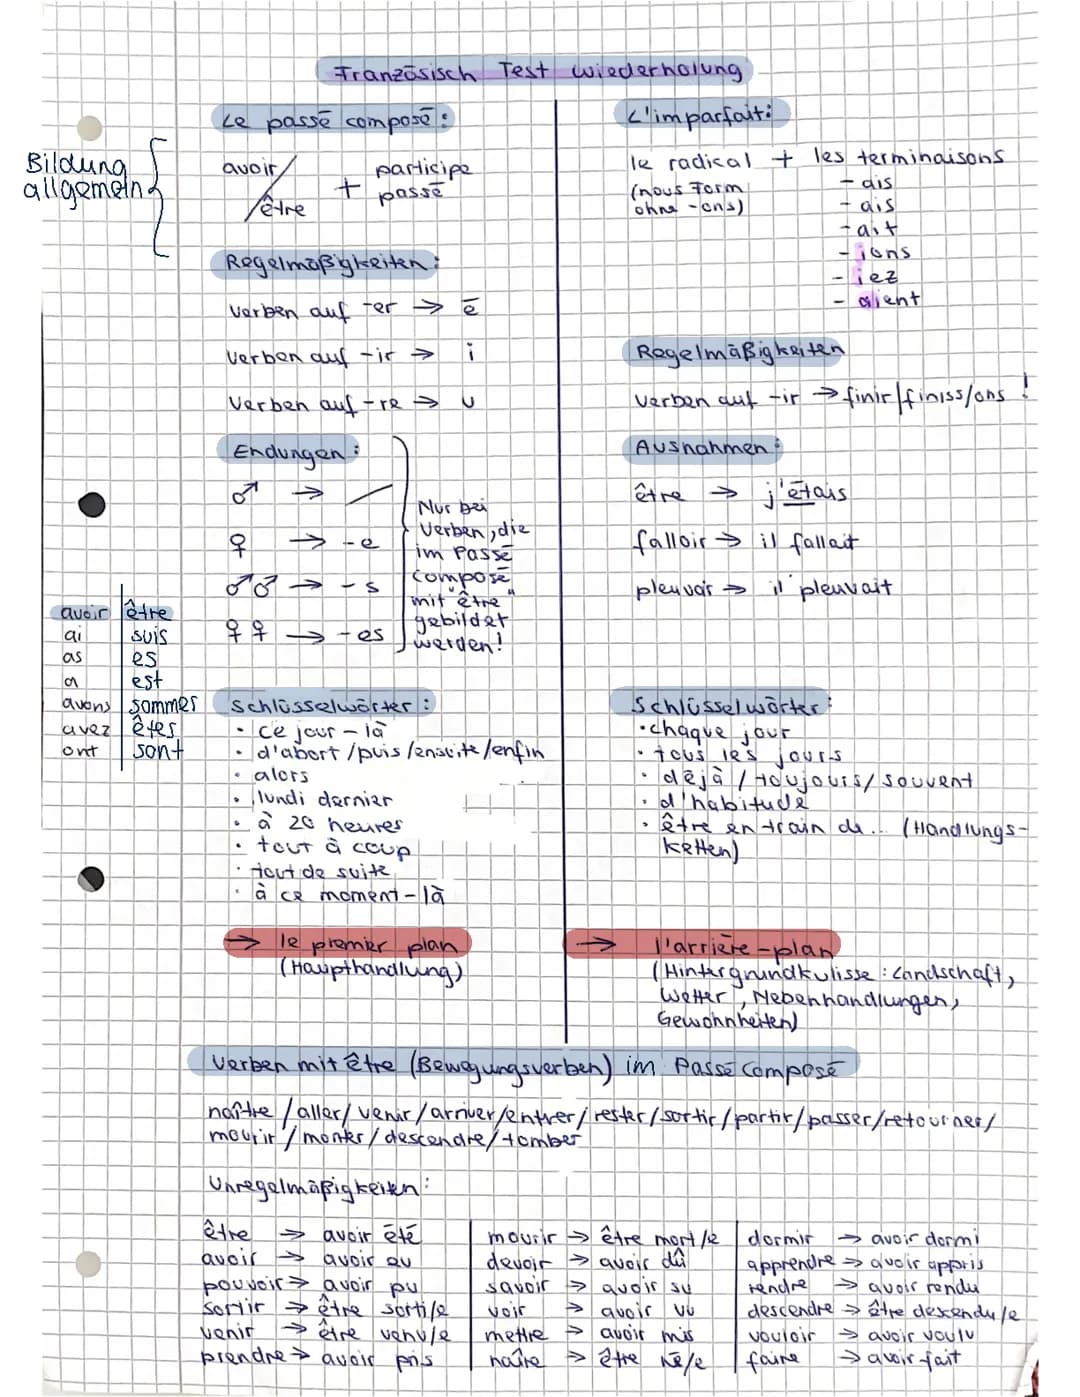 Französisch Test wiederholung
Le passé composé:
Bildung
allgemein
avoir/
être
+
participe
passé
Regelmäßigkeiten:
Verben auf -er → é
Verben auf -ir → i
Verben auf -re → u
Endungen:
♂ → /
♀ → -e
♂♂ → -s
♀♀ → -es
Nur bei
Verben, die
im Passé
composé
mit "être"
gebildet
werden!
avoir être
ai suis
as es
a est
avons sommes
avez êtes
ont sont
Schlüsselwörter:
• ce jour-là
• d'abort/puis/ensuite/enfin
• alors
• lundi dernier
• à 20 heures
• tout à coup
• tout de suite
• à ce moment-là
→ le premier plan
(Haupthandlung)
L'imparfait:
le radical + les terminaisons
(nous Form
ohne -ons)
- ais
- ais
- ait
- ions
- iez
- aient
Regelmäßigkeiten
Verben auf -ir → finir/finiss/ons !
Ausnahmen:
être → j'étais
falloir → il fallait
pleuvoir → il pleuvait
Schlüsselwörter:
• chaque jour
• tous les jours
• déjà / toujours / souvent
• d'habitude
• être en train de... (Handlungs-
ketten)
→ l'arrière-plan
(Hintergrundkulisse: Landschaft,
Wetter, Nebenhandlungen,
Gewohnheiten)
Verben mit être (Bewegungsverben) im Passé composé
naître / aller/ venir / arriver/entrer/ rester/sortir/partir/passer/retourner/
mourir / monter/ descendre/ tomber
Unregelmäßigkeiten:
être → avoir été
avoir → avoir eu
pouvoir → avoir pu
sortir → être sorti/e
venir → être venu/e
prendre → avoir pris
mourir → être mort/e
devoir → avoir dû
savoir → avoir su
voir → avoir vu
mettre → avoir mis
naître → être né/e
dormir → avoir dormi
apprendre → avoir appris
rendre → avoir rendu
descendre → être descendu/e
vouloir → avoir voulu
faire → avoir fait